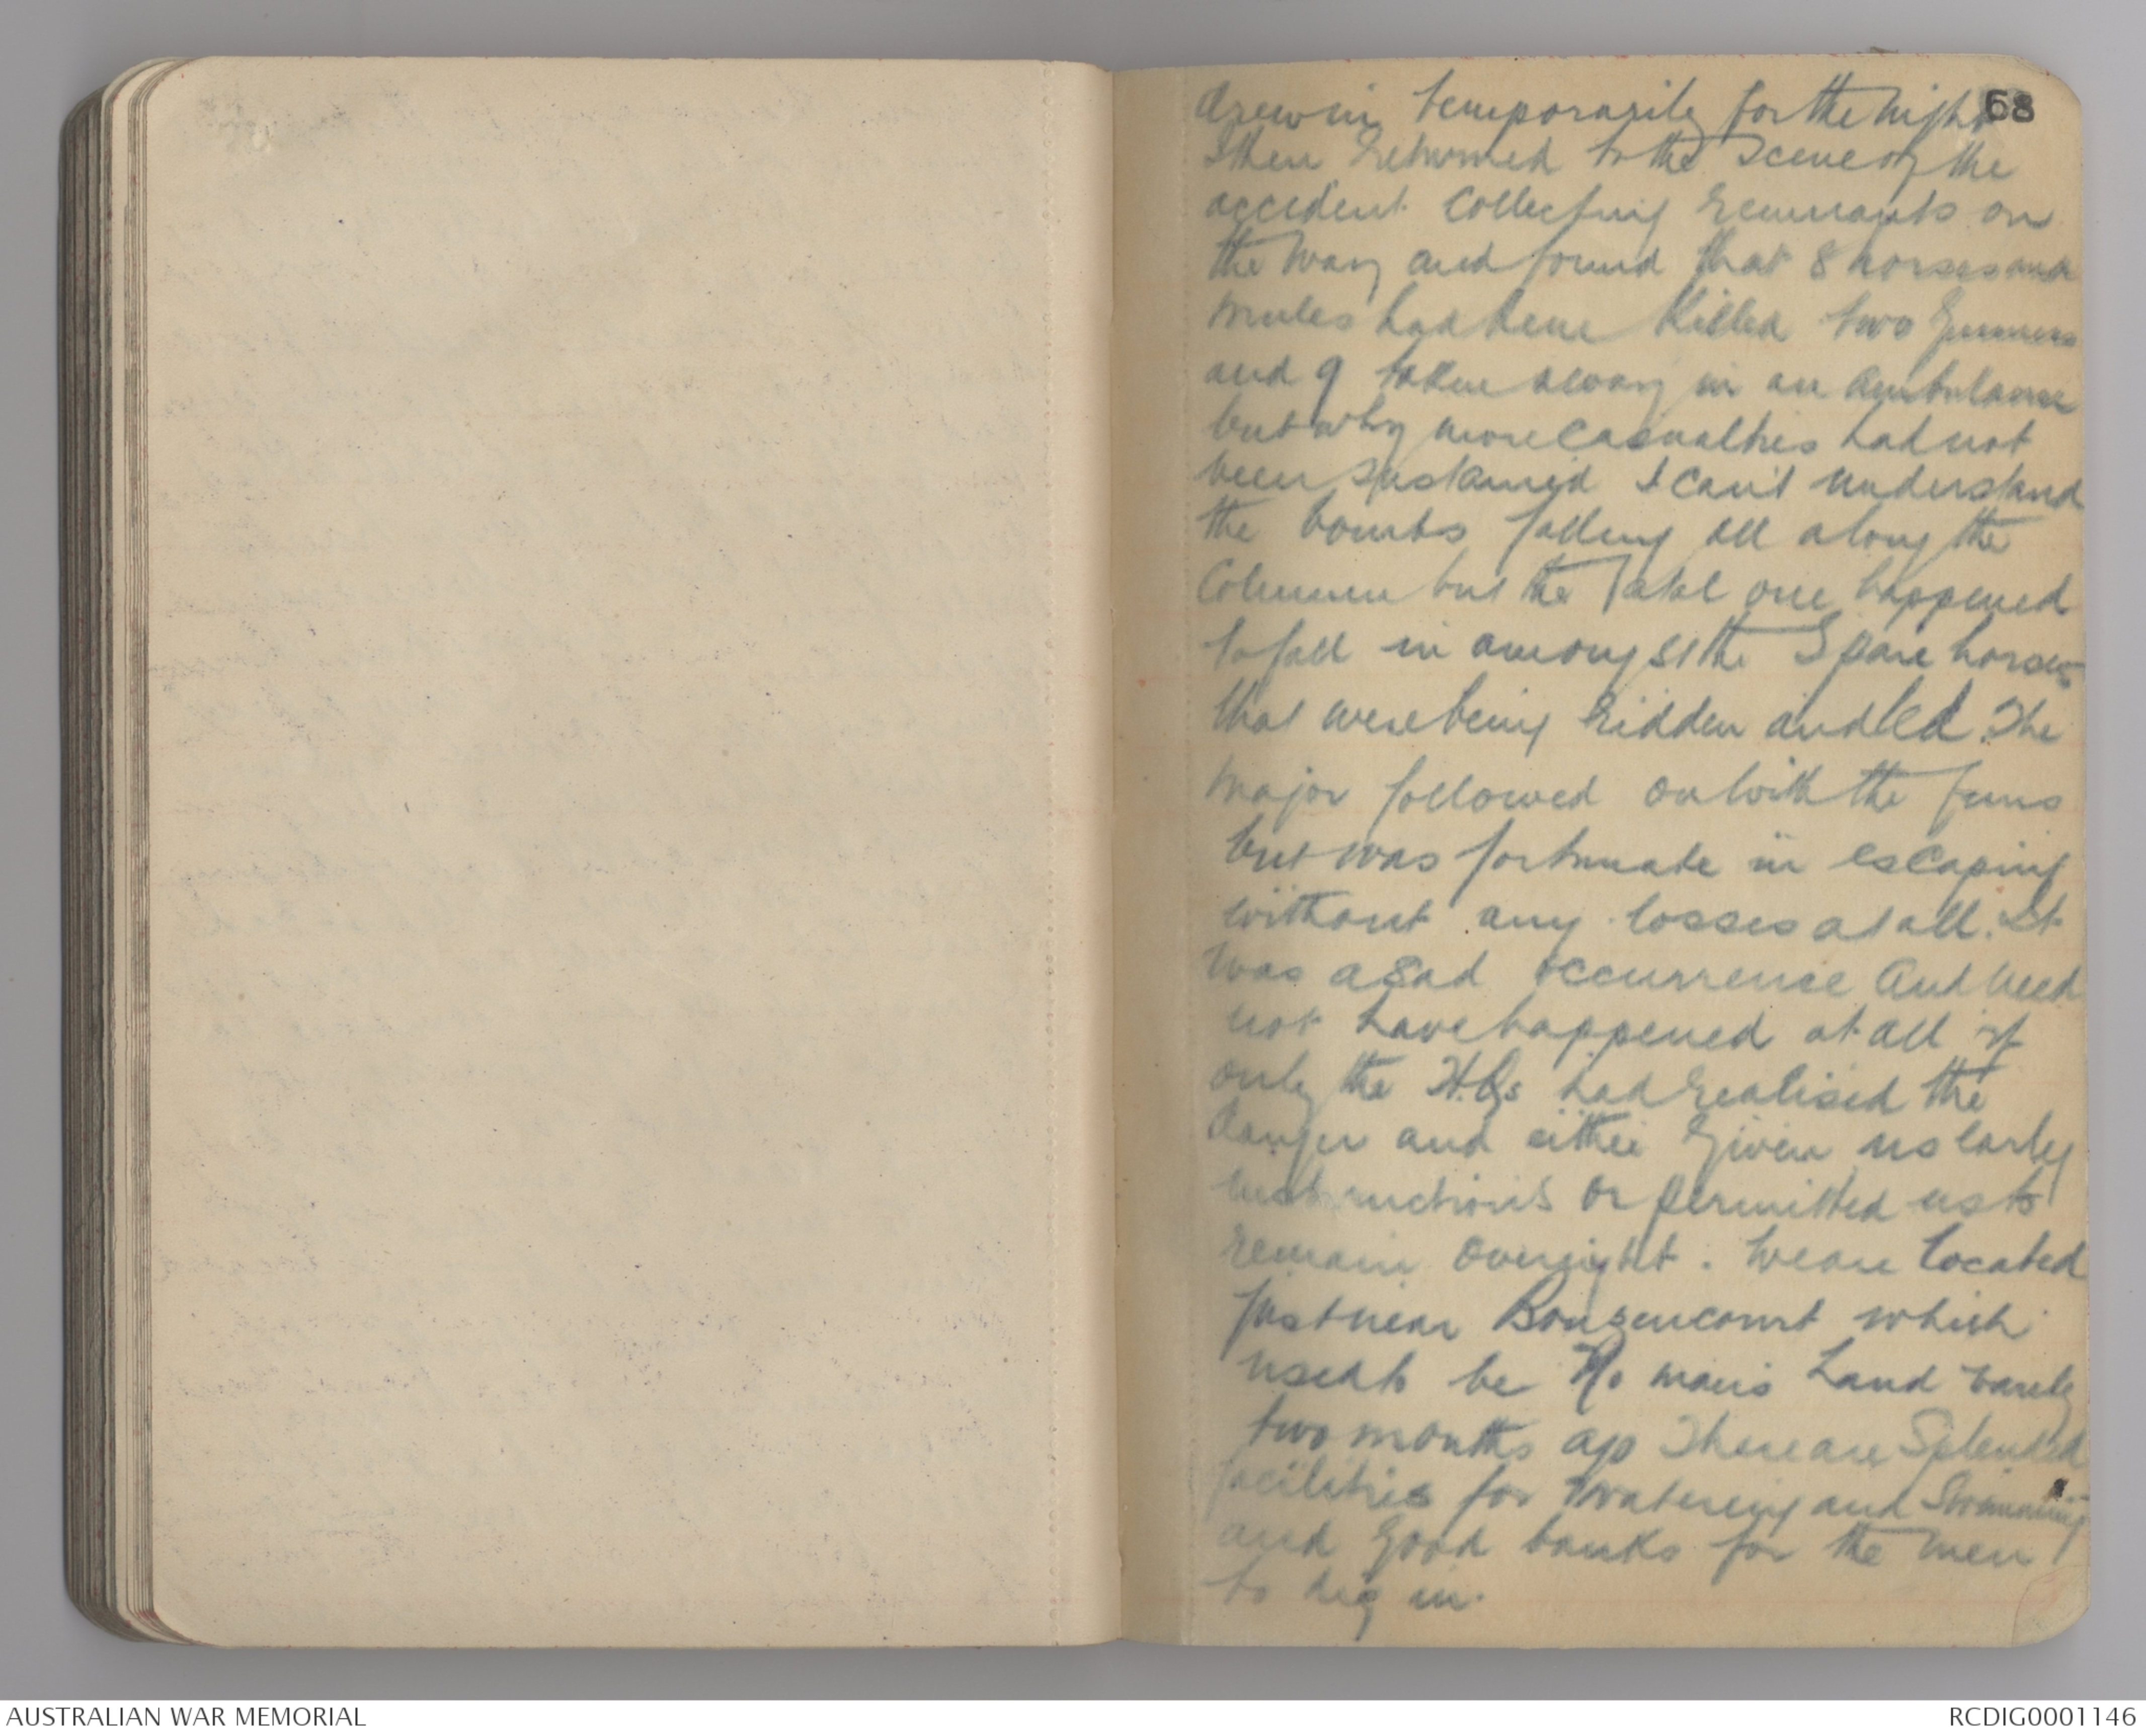 68
drew in temporarily for the night
I then returned to the scene of the
accident collecting remnants on
the way and found that 8 horses and
mules had been killed two Gunners
and 9 taken away in an Ambulance
but why more casualties had not
been sustained I can't understand
the bombs falling all along the
Column but the fatal one happened
to fall in amongst the Spare horses
that were being ridden and led. The
Major followed on with the guns
but was fortunate in escaping
without any losses at all. It
was a sad occurrence And need
not have happened at all if
only the H.Qs had realised the
danger and either given us early
instructions or permitted us to
remain overnight. We are located
just near Bouzencourt which
used to be No mans Land barely
two months ago There are Splendid
facilities for watering and Swimming
and good banks for the men
to dig in.
AUSTRALIAN WAR MEMORIAL
RCDIG0001146